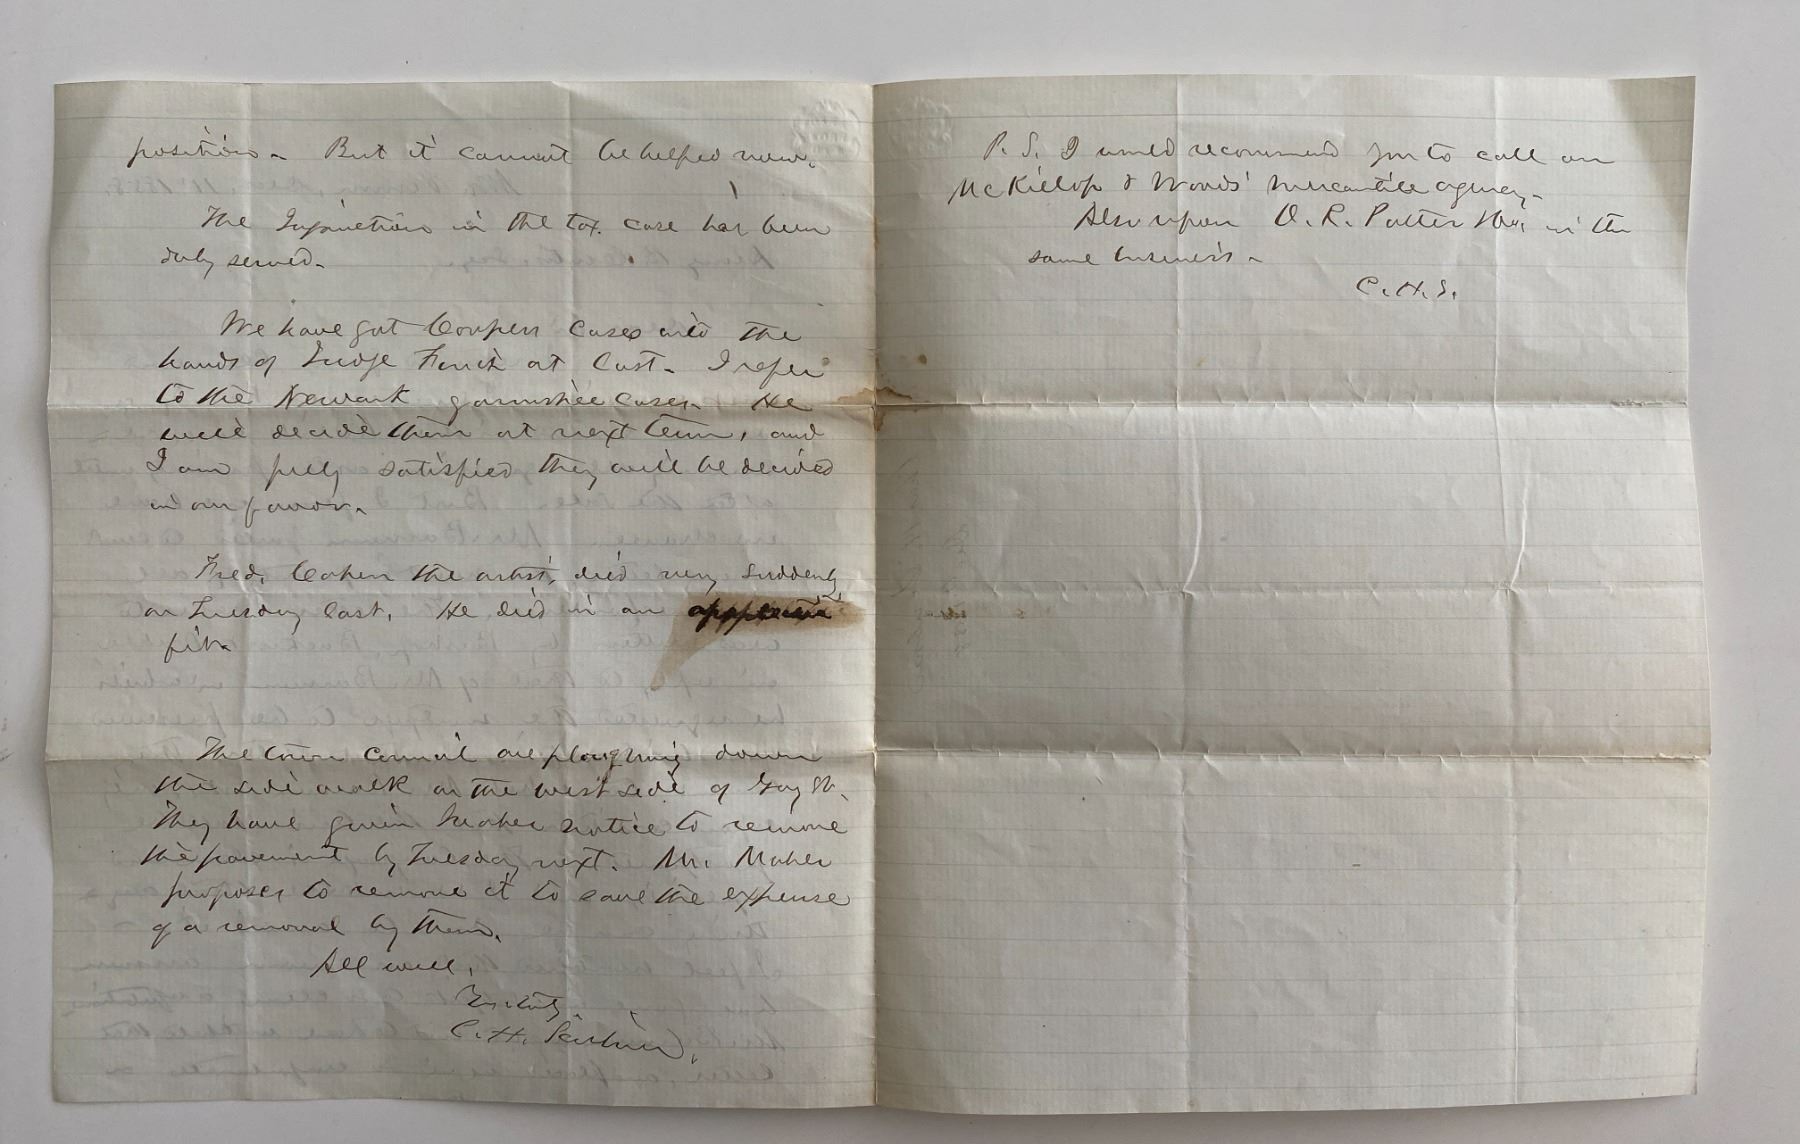 position. But it cannot be helped now.
The Injunction in the tax case has been
duly served.
We have got Coopers cases into the
hands of Judge Finch at last. I refer
to the Newark garnishee cases. He
will decide them at next term, and
I am fully satisfied they will be decided
in our favor.
Fred. Cohen the artist, died very suddenly
on Tuesday last. He died in an
fit.
The town council are ploughing down
the side walk on the west side of Gay St.
They have given Maher notice to remove
the pavement by Tuesday next. Mr. Maher
proposes to remove it to save the expense
of a removal by them.
All well,
Yrs. truly,
C. H. Scribner.
P. S. I would recommend you to call on
McKillop & Woods' mercantile agency.
Also upon O. R. Potter in the
same business.
C. H. S.